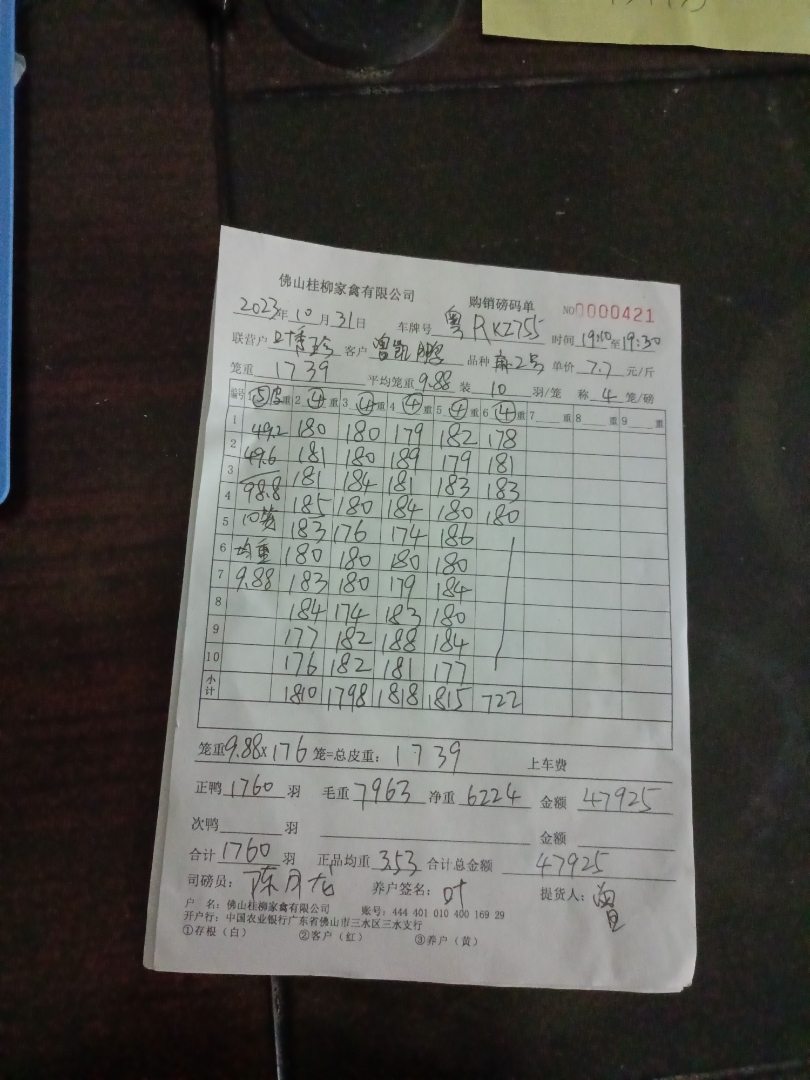 佛山桂柳家禽有限公司 购销磅码单 NO 0000421
2023年10月31日 车牌号 粤RKZ755 时间19:00至19:30
联营户 叶 珍 客户 曾凯鹏 品种 2号 单价 7.7 元/斤
笼重 1739 平均笼重 9.88 装 10 羽/笼 称 4 笼/磅
编号 ⑤皮重 2 ④重 3 ④重 4 ④重 5 ④重 6 ④重 7 重 8 重 9 重
1 49.2 180 180 179 182 178
2 49.6 181 180 189 179 181
3 98.8 181 184 181 183 183
4 10笼 185 180 184 180 180
5 均重 183 176 174 186
6 9.88 180 180 180 180
7 183 180 179 184
8 184 174 183 180
9 177 182 188 184
10 176 182 181 177
小计 1810 1798 1818 1815 722
笼重9.88x176笼=总皮重: 1739 上车费
正鸭 1760 羽 毛重 7963 净重 6224 金额 47925
次鸭 羽 金额
合计 1760 羽 正品均重 3.53 合计总金额 47925
司磅员: 陈月龙 养户签名: 叶 提货人: 曾
户 名: 佛山桂柳家禽有限公司 账号: 444 401 010 400 169 29
开户行: 中国农业银行广东省佛山市三水区三水支行
①存根(白) ②客户(红) ③养户(黄)